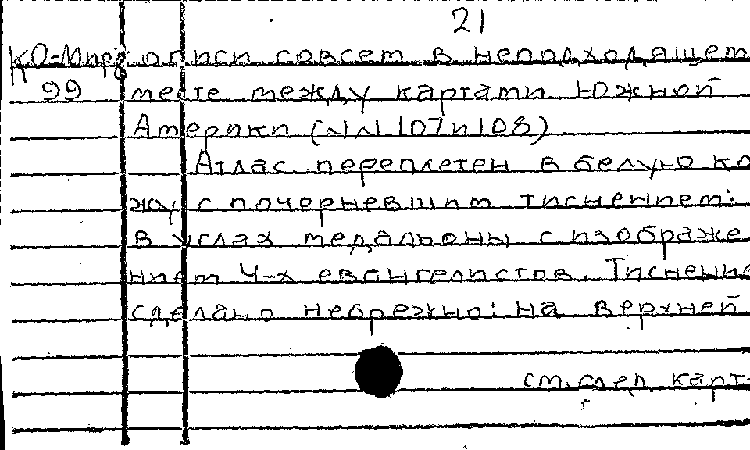 21
КО-Мир описи совсем в неподходящем
99 месте между картами Южной
Америки (NN 107 и 108)
Атлас переплетен в белую ко
жу с почерневшим тиснением:
в углах медальоны с изображе
нием 4-х евангелистов. Тиснение
сделано небрежно: на верхней
см. след. карт.